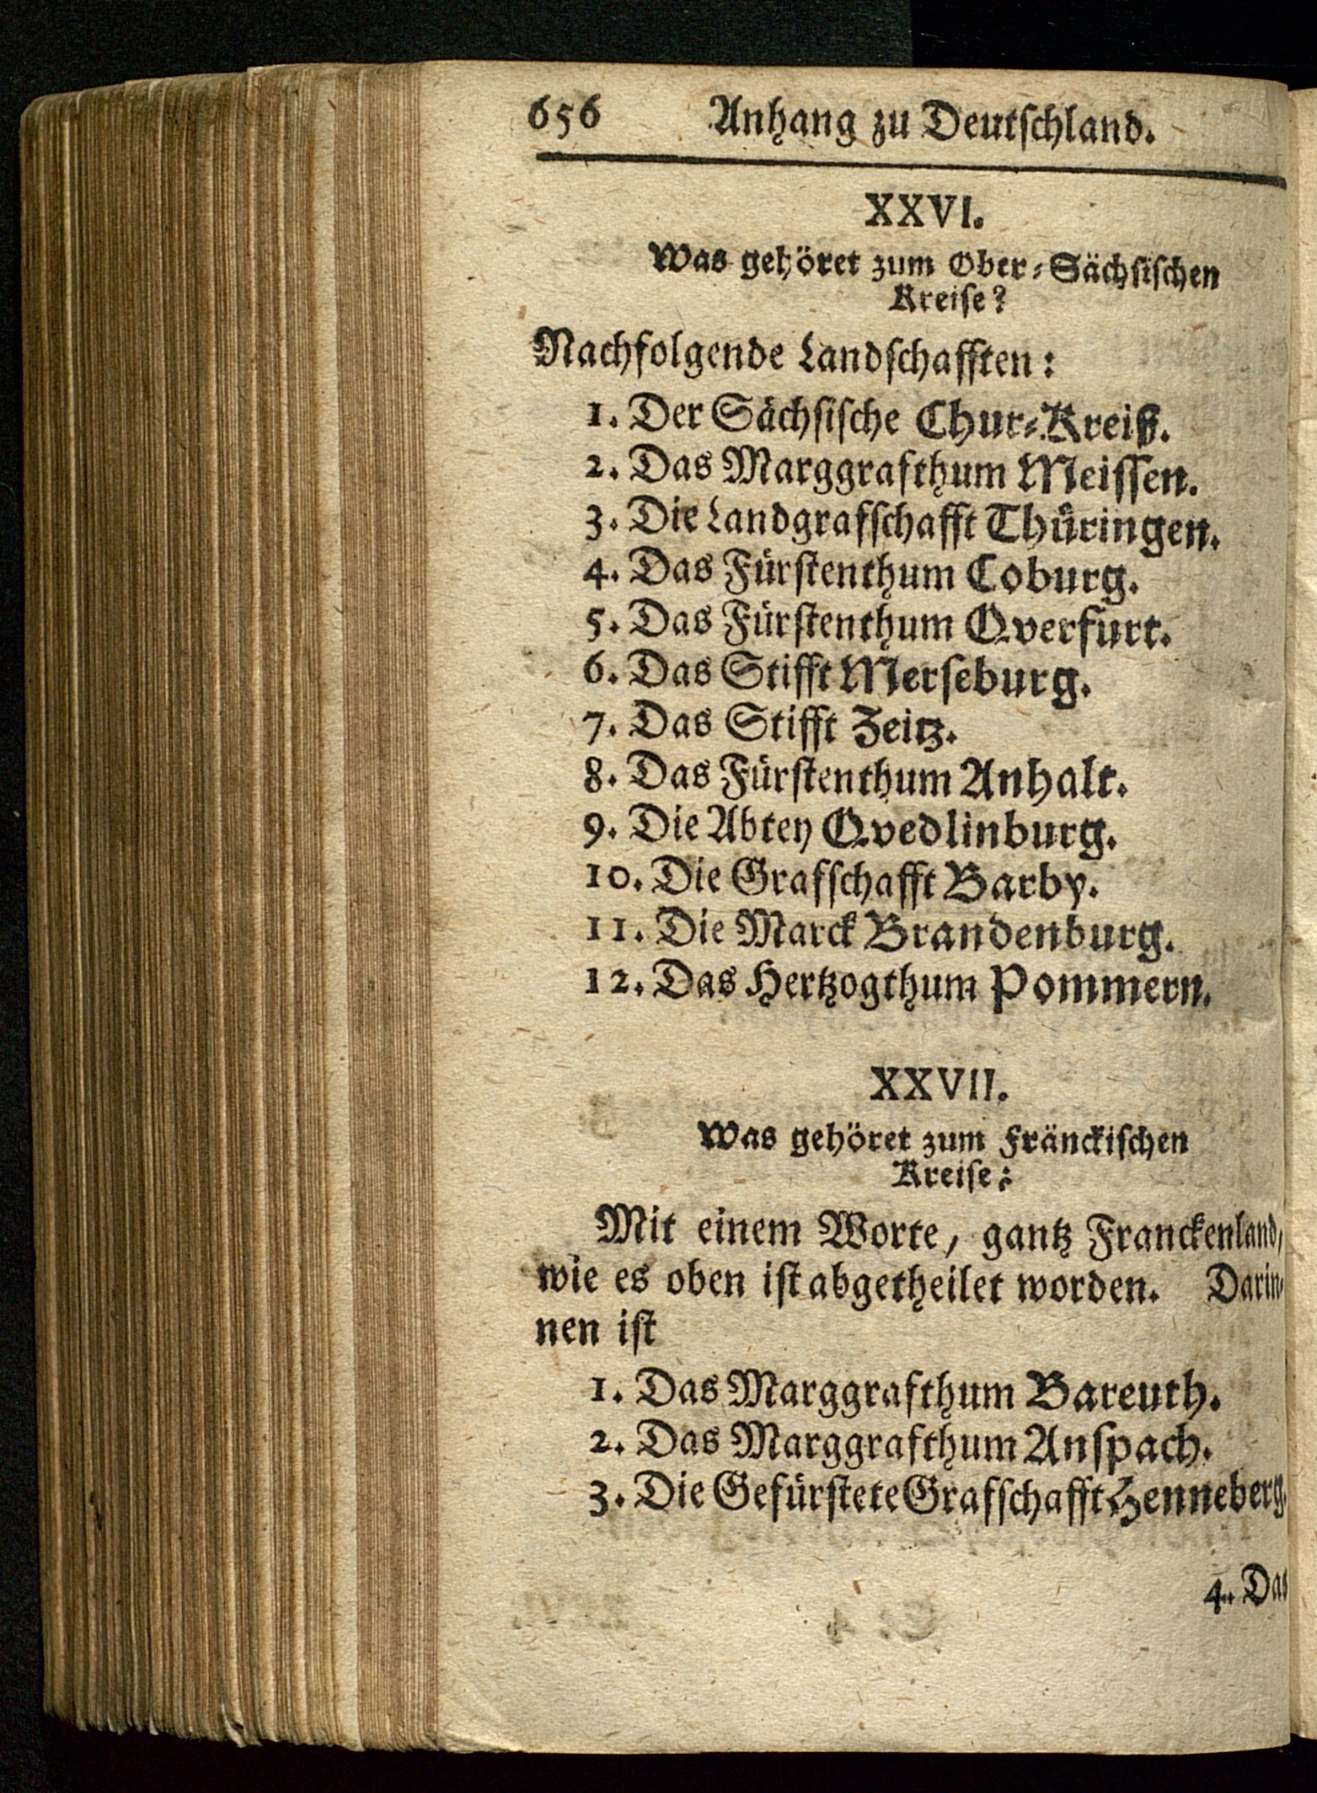 656 Anhang zu Deutſchland.
XXVI.
Was gehöret zum Ober-Sächſiſchen
Kreiſe?
Nachfolgende Landſchafften:
1. Der Sächſiſche Chur-Kreiß.
2. Das Marggrafthum Meiſſen.
3. Die Landgrafſchafft Thüringen.
4. Das Fürſtenthum Coburg.
5. Das Fürſtenthum Qverfurt.
6. Das Stifft Merſeburg.
7. Das Stifft Zeitz.
8. Das Fürſtenthum Anhalt.
9. Die Abtey Qvedlinburg.
10. Die Grafſchafft Barby.
11. Die Marck Brandenburg.
12. Das Hertzogthum Pommern.
XXVII.
Was gehöret zum Fränckiſchen
Kreiſe?
Mit einem Worte, gantz Franckenland,
wie es oben iſt abgetheilet worden. Darin-
nen iſt
1. Das Marggrafthum Bareuth.
2. Das Marggrafthum Anſpach.
3. Die Gefürſtete Grafſchafft Henneberg.
4. Das